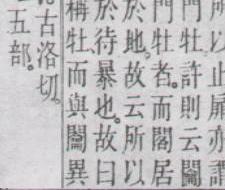 所以止扉亦謂
門牡。許則云
門牡者。而閣居
於地。故云所以
於待暴也。故曰
稱牡而與異
古洛切。
五部。